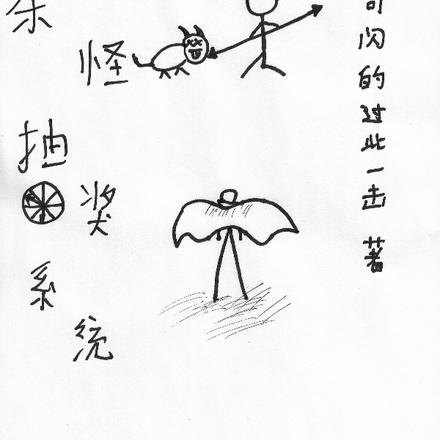 杀
怪
抽
奖
系
统
可闪的过此一击 著